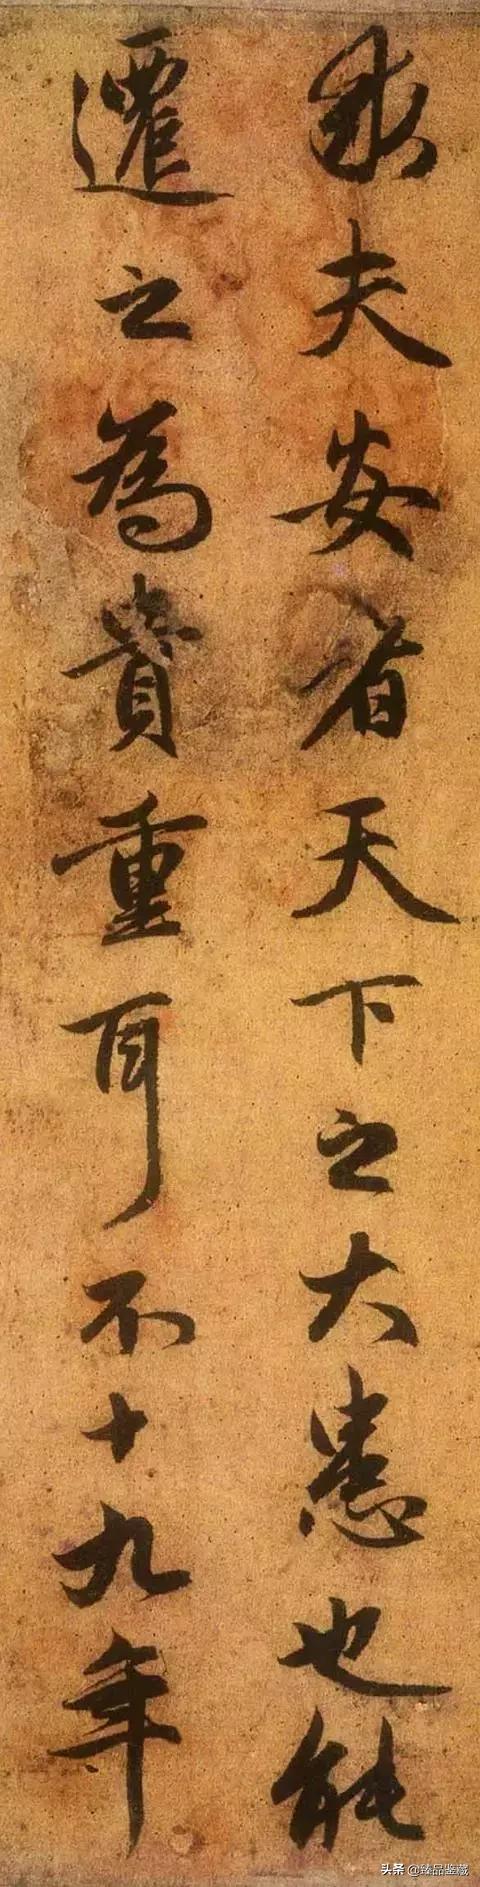 夫安者天下之大患也能
遷之為貴重耳不十九年
头条 @臻品鉴藏